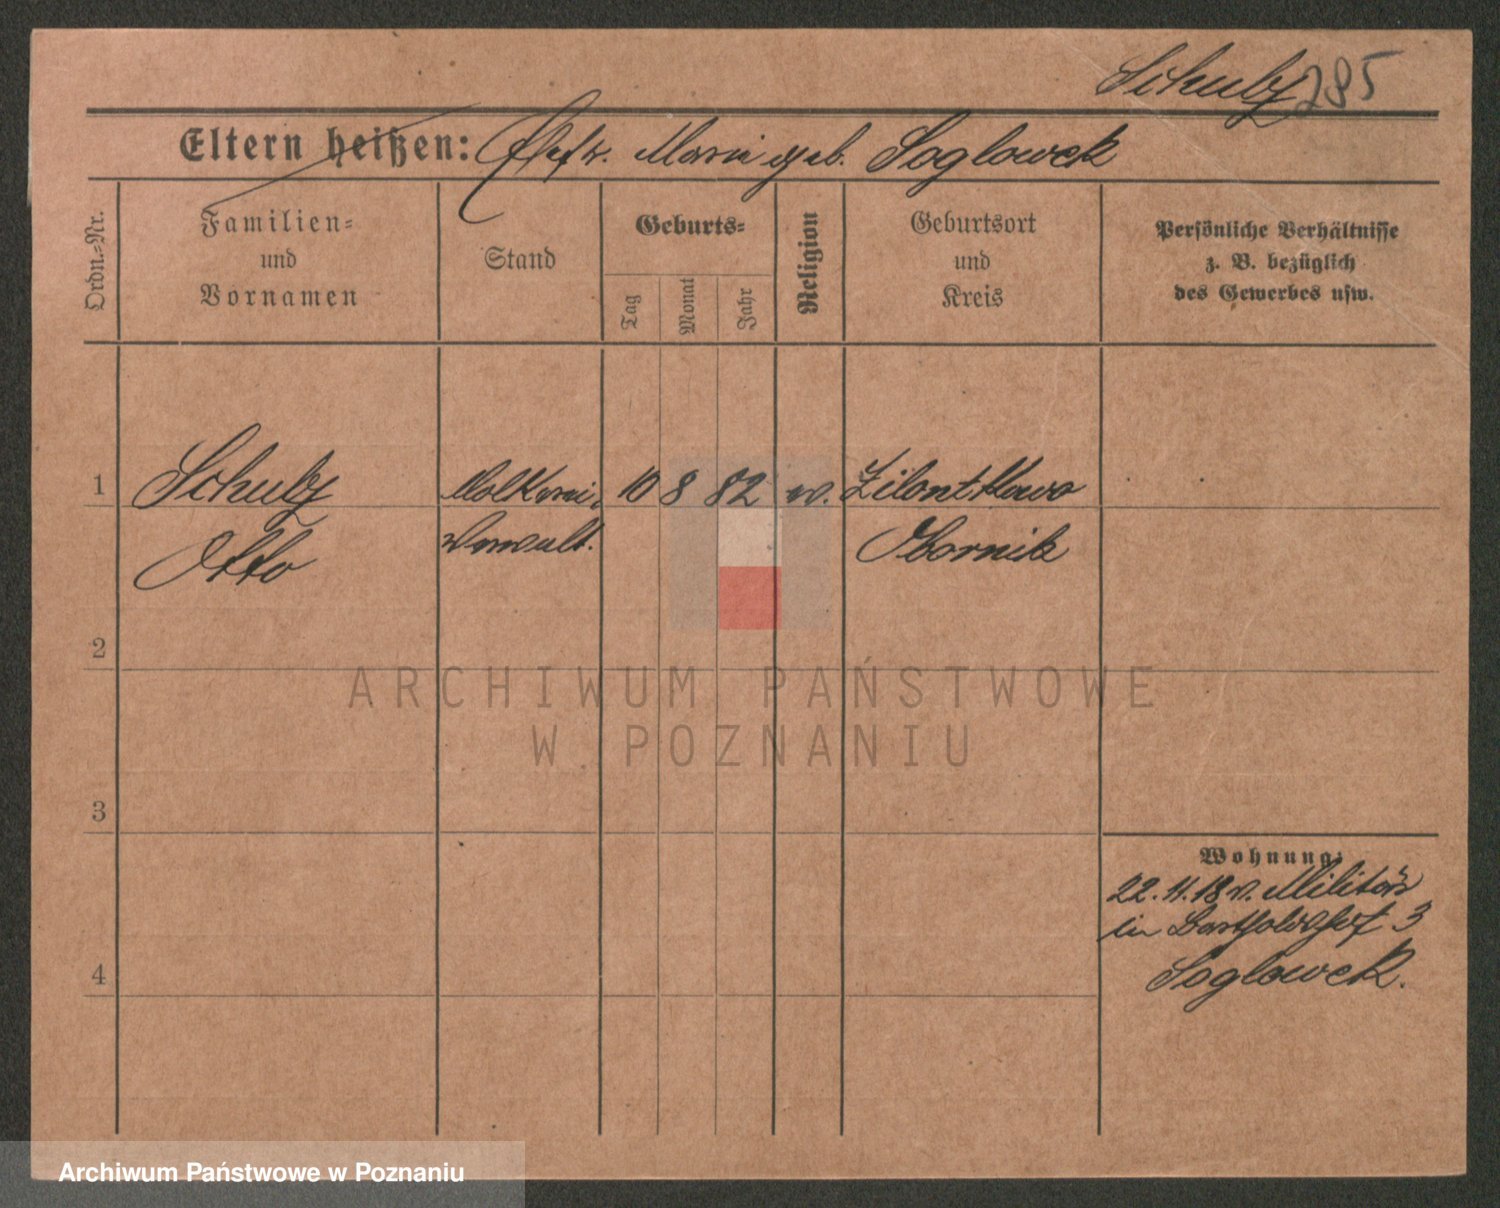 Schulz 285
Eltern heißen: Ehefr. Marie geb. Soglowek
Ordn.-Nr.
Familien-
und
Vornamen
Stand
Geburts-
Tag
Monat
Jahr
Religion
Geburtsort
und
Kreis
Persönliche Verhältnisse
z. B. bezüglich
des Gewerbes usw.
1 Schulz Molkerei 10 8 82 ev.
Otto Verwalt. Obornik
2
3
4
Wohnung:
22.11.18 v. Militär
in Bartholdshof 3
Soglowek.
ARCHIWUM PAŃSTWOWE
W POZNANIU
Archiwum Państwowe w Poznaniu